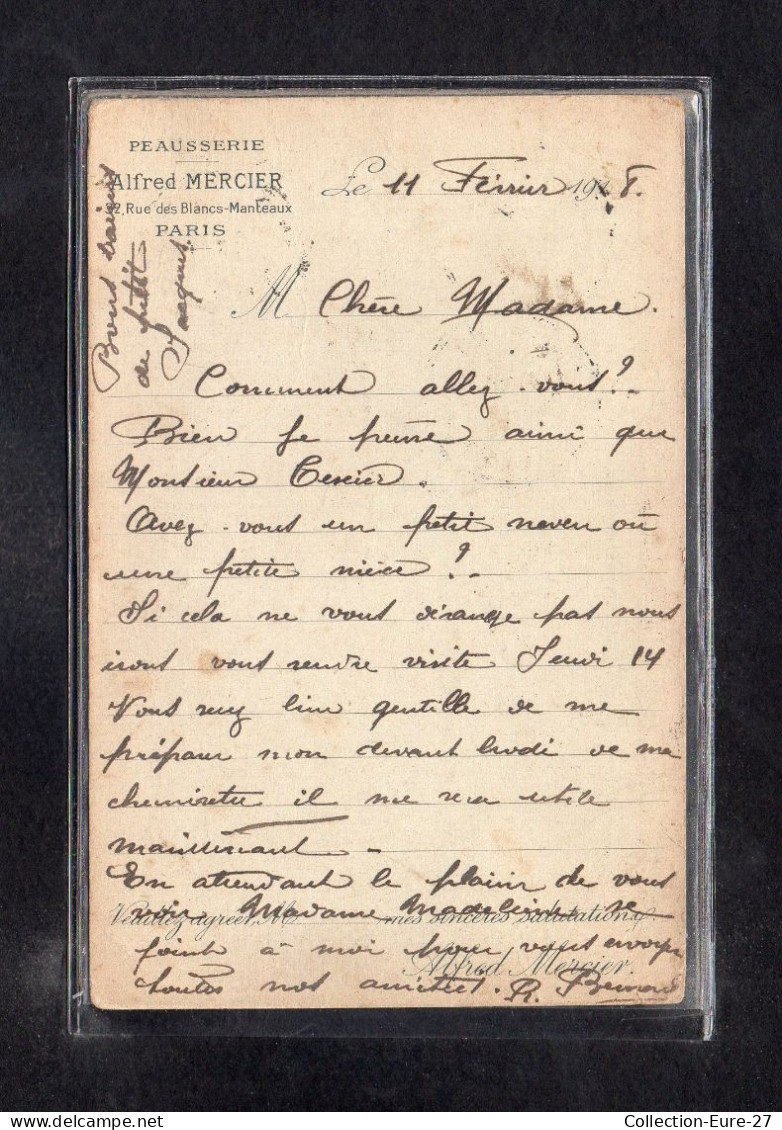 PEAUSSERIE
Alfred MERCIER
12, Rue des Blancs-Manteaux
PARIS
Le 11 Février 19 8.
Bons baisers
de petit
Jacques
M Chère Madame.
Comment allez-vous?
Bien je pense ainsi que
Monsieur
Avez-vous un petit neveu ou
une petite nièce?
Si cela ne vous dérange pas nous
irons vous rendre visite Jeudi 14
Vous serez bien gentille de me
préparer mon devant brodé de ma
chemisette il me sera utile
maintenant
En attendant le plaisir de vous
voir Madame Madeleine se
Veuillez agréer, M mes sincères salutations.
joint à moi pour vous envoyer
Alfred Mercier.
toutes nos amitiés. R.
Collection-Eure-27